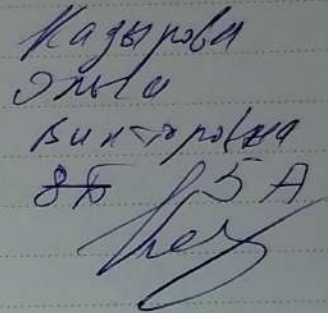 Кадырова
Эльза
Викторовна
8Б 5А